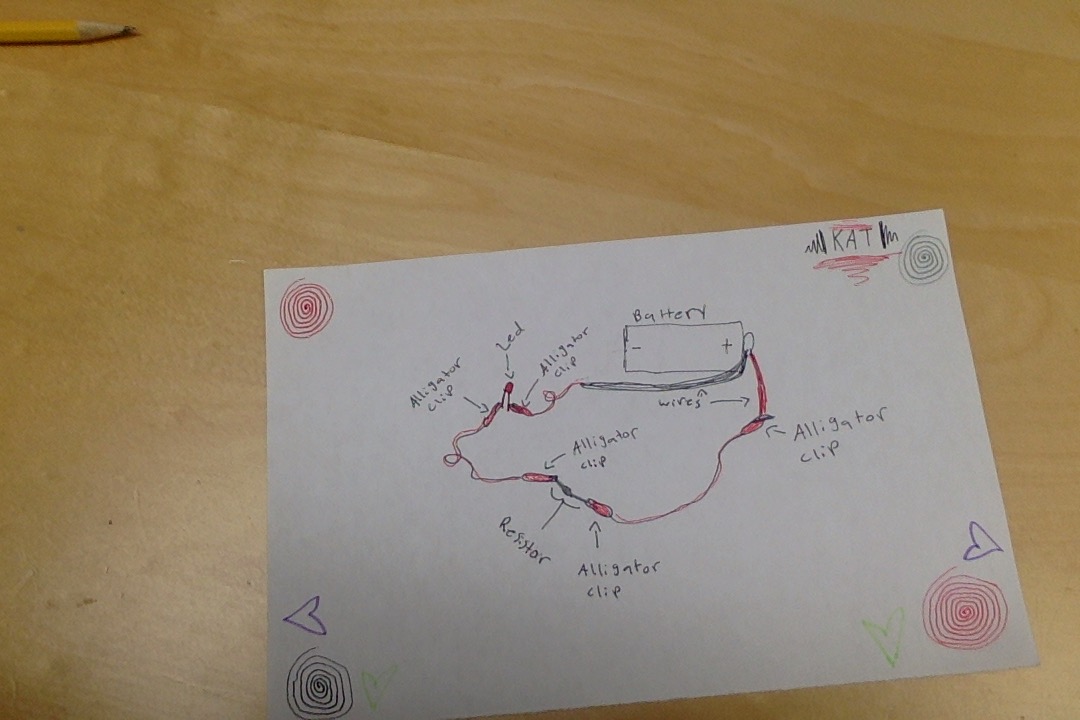 KAT
Battery
- +
Led
Alligator
clip
Alligator
clip
wires
Alligator
clip
Alligator
clip
Resistor
Alligator
clip